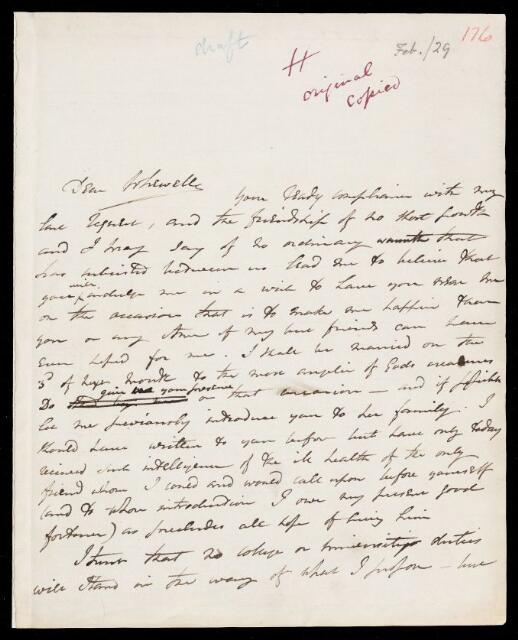 draft
H
original
copied
Feb./29
176
Dear Whewell
Your ready compliance with my
late request, and the friendship of no short growth
and I may say of no ordinary warmth that
has subsisted between us lead me to believe that
you will indulge me in a wish to have you near me
on the occasion that is to make me happier than
you or any other of my best friends can have
ever hoped for me. I shall be married on the
3d of next month to the most angelic of Gods creatures
Do give me your presence on that occasion – and if possible
let me previously introduce you to her family. I
should have written to you before but have only today
received such intelligence of the ill health of the only
friend whom I could and would call upon before yourself
(and to whose introduction I owe my present good
fortune) as precludes all hope of having him
I trust that no college or university duties
will stand in the way of what I propose –